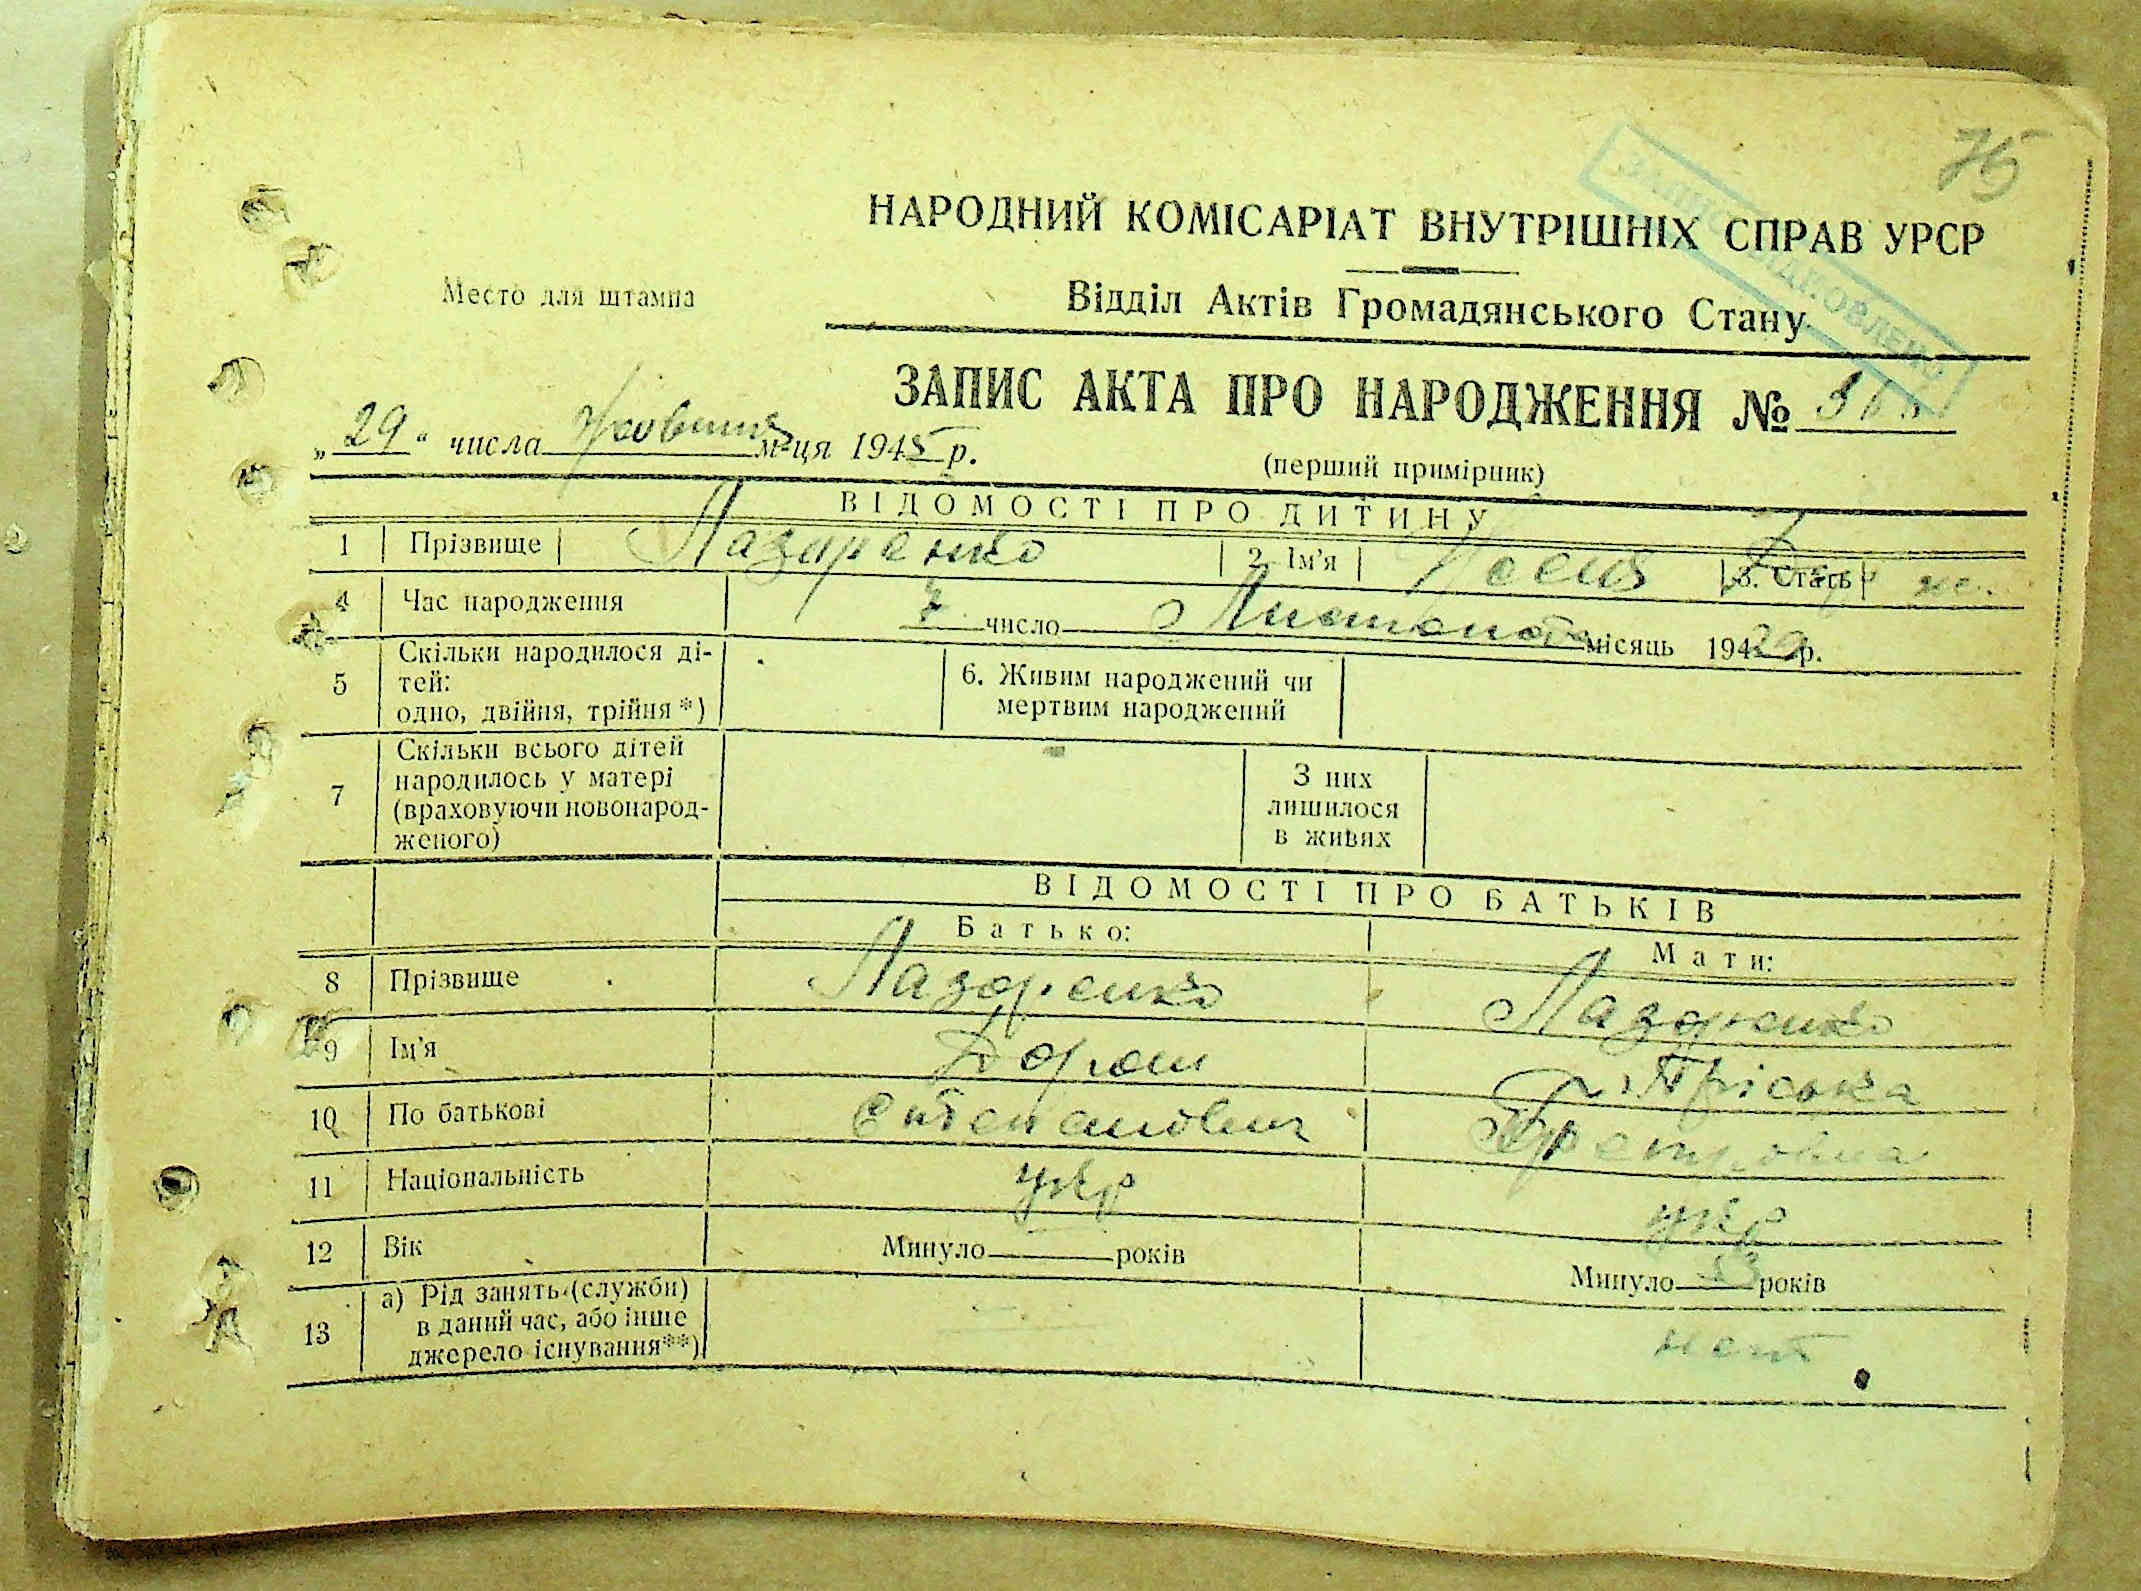 75
ЗАПИС ВІДНОВЛЕНО
НАРОДНИЙ КОМІСАРІАТ ВНУТРІШНІХ СПРАВ УРСР
Место для штампа
Відділ Актів Громадянського Стану
ЗАПИС АКТА ПРО НАРОДЖЕННЯ №
„29“ числа Жовтня м-ця 1945 р.
(перший примірник)
ВІДОМОСТІ ПРО ДИТИНУ
1 Прізвище Лазаренко 2. Ім’я 3. Стать ж.
4 Час народження 7 число Листопада місяць 1929 р.
5 Скільки народилося ді-
тей:
одно, двійня, трійня *)
6. Живим народжений чи
мертвим народжений
7 Скільки всього дітей
народилось у матері
(враховуючи новонарод-
женого)
З них
лишилося
в живих
ВІДОМОСТІ ПРО БАТЬКІВ
Батько: Мати:
8 Прізвище Лазаренко Лазаренко
9 Ім’я Дорош Пріська
10 По батькові Степанович Петровна
11 Національність укр укр
12 Вік Минуло років Минуло 53 років
13 а) Рід занять (служби)
в даний час, або інше
джерело існування**)
нет